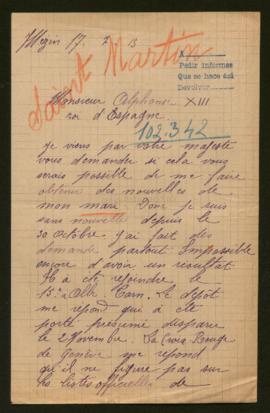 Saint Martin
Pedir informes
Que se hace acá
Devolver
Monsieur Alphonse XIII
roi d'Espagne
102.342
Je viens par votre majeste
vous demander si cela vous
serais possible de me faire
obtenir des nouvelles de
mon mari Dont je suis
sans nouvelle depuis le
30 Octobre. J'ai fait des
demande partout Impossible
encore d'avoir un résultat
Il a ete rejoindre le
15e a Albi Tarn. Le dépôt
me repond qui a ete
porté présumé disparu
le 2 Novembre. La Croix Rouge
de Genève me repond
qu'il ne figure pas sur
les listes officielles de